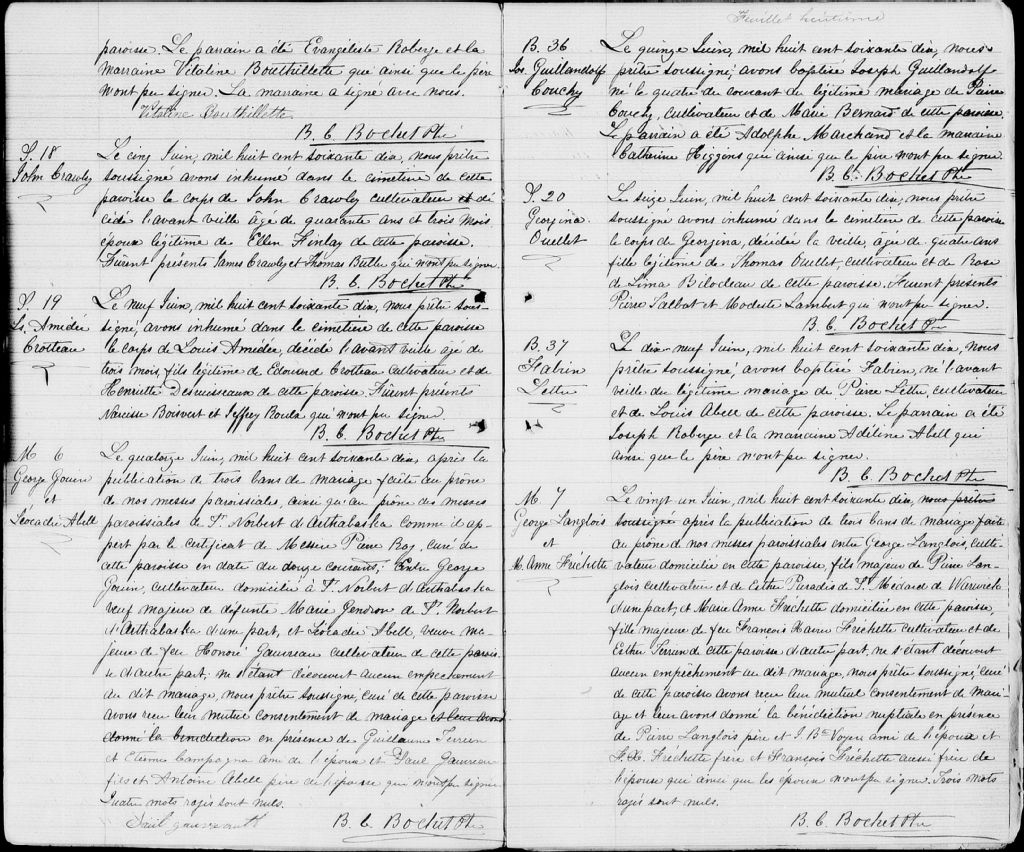 paroisse. Le parrain a été Evangeliste Roberge et la
marraine Vitaline Bouthillette qui ainsi que le père
n'ont pu signer. La marraine a signé avec nous.
Vitaline Bouthillette
B. C. Bochet Ptre
S. 18
John Crawly
Le cinq Juin, mil huit cent soixante dix, nous prêtre
soussigné avons inhumé dans le cimetière de cette
paroisse le corps de John Crawley cultivateur et dé
cédé l'avant veille âgé de quarante ans et trois mois
époux légitime de Ellen Finlay de cette paroisse.
Fûrent présents James Crawley et Thomas Butler qui n'ont pu signer
B. C. Bochet Ptre
S. 19
Ls. Amédée
Crotteau
Le neuf Juin, mil huit cent soixante dix, nous prêtre sous-
signé, avons inhumé dans le cimetière de cette paroisse
le corps de Louis Amédée, décédé l'avant veille âgé de
trois mois, fils légitime de Edouard Crotteau cultivateur et de
Henriette Desruisseaux de cette paroisse. Fûrent présents
Narcisse Boisvert et Jeffrey Roulx qui n'ont pu signer.
B. C. Bochet Ptre
M 6
George Gouin
et
Léocadie Abell
Le quatorze Juin, mil huit cent soixante dix, après la
publication de trois bans de mariage faite au prône
de nos messes paroissiales, ainsi qu'au prône des messes
paroissiales de St. Norbert d'Arthabaska comme il ap-
pert par le certificat de Messire Pierre Roy, curé de
cette paroisse en date du douze courant, Entre George
Gouin, cultivateur domicilié à St. Norbert d'Arthabaska
veuf majeur de défunte Marie Gendron de St. Norbert
d'Arthabaska d'une part, et Léocadie Abell, veuve ma-
jeure de feu Honoré Gauvreau cultivateur de cette parois-
se d'autre part; ne s'étant découvert aucun empêchement
au dit mariage, nous prêtre soussigné, curé de cette paroisse
avons reçu leur mutuel consentement de mariage et leur avons
donné la bénédiction en présence de Guillaume Perrin
et Etienne Campagna ami de l'époux et Paul Gauvreau
fils et Antoine Abell père de l'épouse qui n'ont pu signer
Quatre mots rayés sont nuls.
B. C. Bochet Ptre
Feuillet huitième
B. 36
Jos. Guillandolf
Couchy
Le quinze Juin, mil huit cent soixante dix, nous
prêtre soussigné, avons baptisé Joseph Guillandolf
né le quatre du courant du légitime mariage de Pierre
Couchy, cultivateur et de Marie Bernard de cette paroisse.
Le parrain a été Adolphe Marchand et la marraine
Catherine Higgins qui ainsi que le père n'ont pu signer.
B. C. Bochet Ptre
S. 20
Georgina
Ouellet
Le seize Juin, mil huit cent soixante dix, nous prêtre
soussigné avons inhumé dans le cimetière de cette paroisse
le corps de Georgina, décédée la veille, âgée de quatre ans
fille légitime de Thomas Ouellet, cultivateur et de Rose
de Lima Bilodeau de cette paroisse. Furent présents
Pierre Talbot et Modeste Lambert qui n'ont pu signer.
B. C. Bochet Ptre
B. 37
Fabien
Lettre
Le dix-neuf Juin, mil huit cent soixante dix, Nous
prêtre soussigné, avons baptisé Fabien, né l'avant
veille du légitime mariage de Pierre Lettre, cultivateur
et de Louis Abell de cette paroisse. Le parrain a été
Joseph Roberge et la marraine Adéline Abell qui
ainsi que le père n'ont pu signer.
B. C. Bochet Ptre
M. 7
George Langlois
et
M. Anne Fréchette
Le vingt un Juin, mil huit cent soixante dix, nous prêtre
soussigné après la publication de trois bans de mariage faite
au prône de nos messes paroissiales entre George Langlois, culti-
vateur domicilié en cette paroisse, fils majeur de Pierre Lan-
glois cultivateur et de Esther Paradis de St. Médard de Warwick
d'une part, et Marie Anne Fréchette domiciliée en cette paroisse,
fille majeure de feu François Xavier Fréchette cultivateur et de
Esther Perrin de cette paroisse d'autre part, ne s'étant découvert
aucun empêchement au dit mariage, nous prêtre soussigné, curé
de cette paroisse avons reçu leur mutuel consentement de mari-
age et leur avons donné la bénédiction nuptiale en présence
de Pierre Langlois père et J. Bte Voyer ami de l'époux et
F.X. Fréchette frère et François Fréchette aussi frère de
l'épouse qui ainsi que les époux n'ont pu signer. Trois mots
rayés sont nuls.
B. C. Bochet Ptre